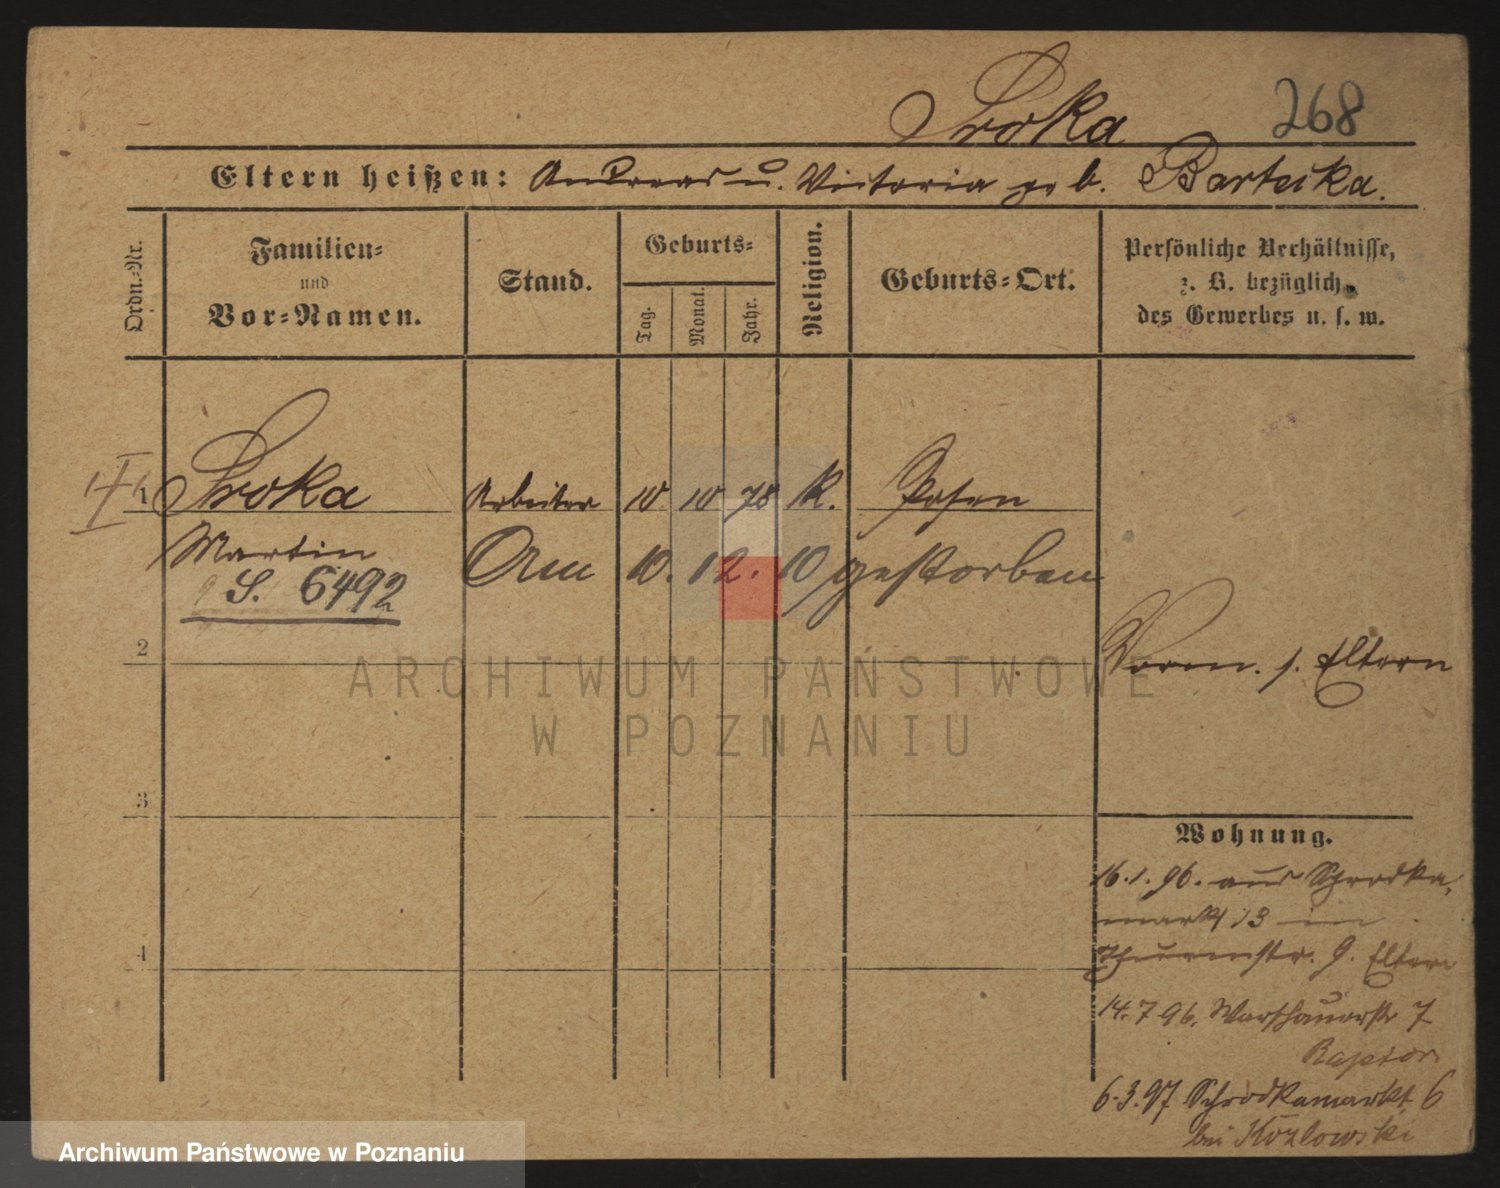 Sroka 268
Eltern heißen: Andreas u. Victoria geb. Barteska.
Ordn.-Nr.
Familien-
und
Vor-Namen.
Stand.
Geburts-
Tag.
Monat.
Jahr.
Religion.
Geburts-Ort.
Persönliche Verhältnisse,
z. B. bezüglich
des Gewerbes u. s. w.
1 Sroka Arbeiter 10 10 78 K. Posen
Martin Am 10. 12. 10 gestorben
S. 6492
2
Vorm. s. Eltern
ARCHIWUM PAŃSTWOWE
W POZNANIU
3
Wohnung.
16.1.96. aus Schrodka-
markt 13 in
4
Thurmstr. 9. Eltern
14.7.96. Warschauerstr 7
Raptor
6.3.97 Schrodkamarkt 6
bei Kozlowski
Archiwum Państwowe w Poznaniu